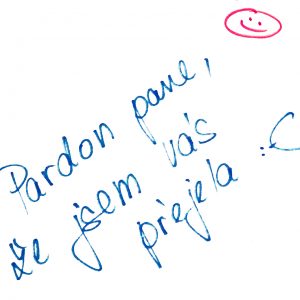 Pardon pane,
že jsem vás
přejela :(